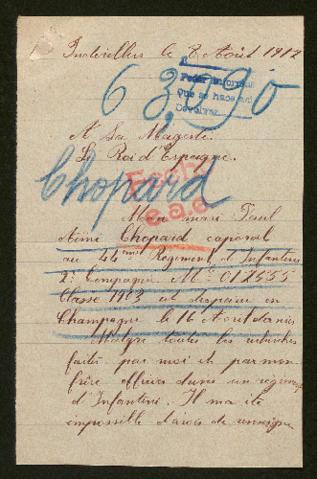 le 8 Août 1917
63,090
A Sa Majesté
Le Roi d'Espagne.
Chopard
Mon mari Paul
Aimé Chopard caporal
au 44me Regiment d'Infanterie
2e Compagnie Mle 012555
Classe 1903 est disparu en
Champagne le 16 Avril dernier
Malgré toutes les recherches
faites par moi et par mon
frère officier dans un regiment
d'Infanterie. Il m'a été
impossible d'avoir de renseigne